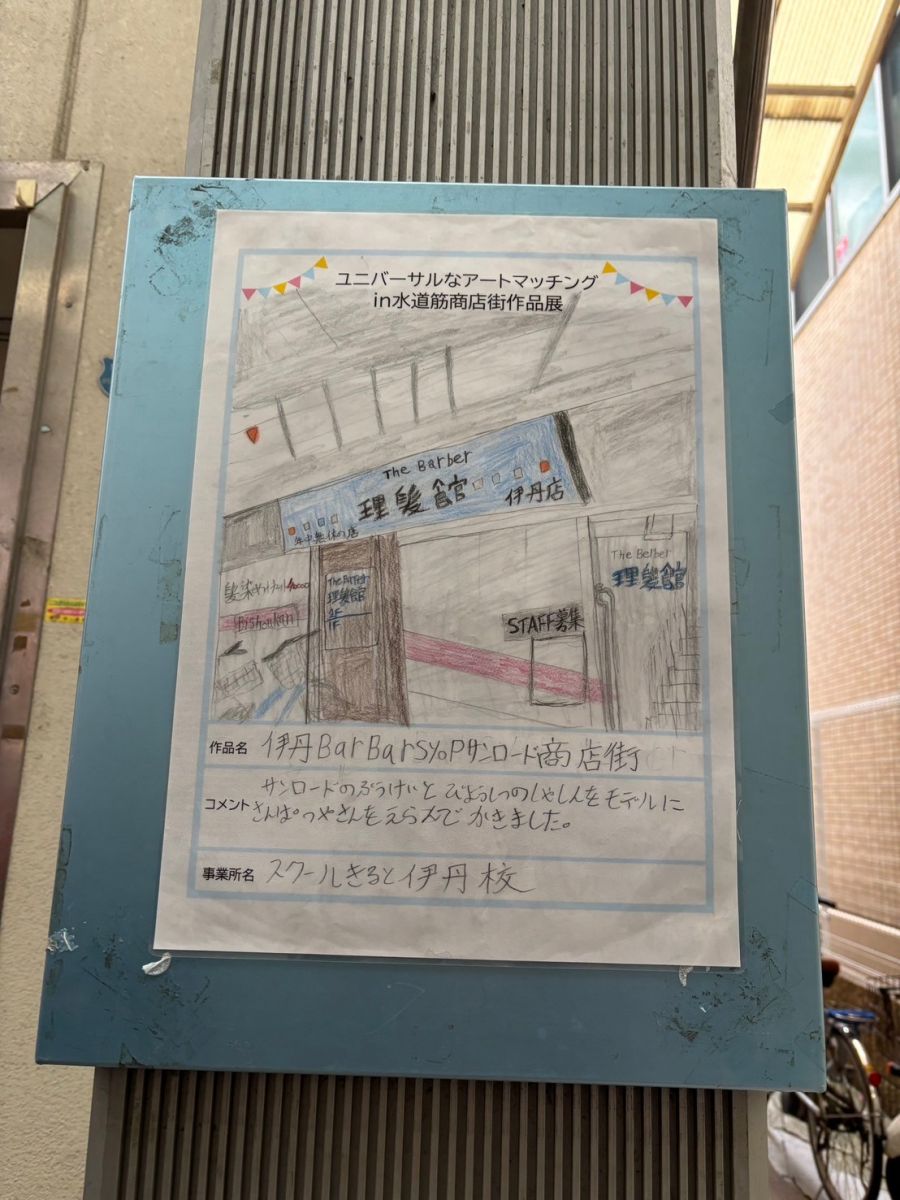 ユニバーサルなアートマッチング
in水道筋商店街作品展
The Barber
理髪館
伊丹店
年中無休の店
髪染め
Bishoukan
The Barber
理髪館
2F
1F
STAFF募集
The Berber
理髪館
作品名 伊丹BarBarSyoPサンロード商店街
コメント サンロードのふうけいと びようしつのしゃしんをモデルに
さんぱつやさんをえらんで かきました。
事業所名 スクールきると伊丹校